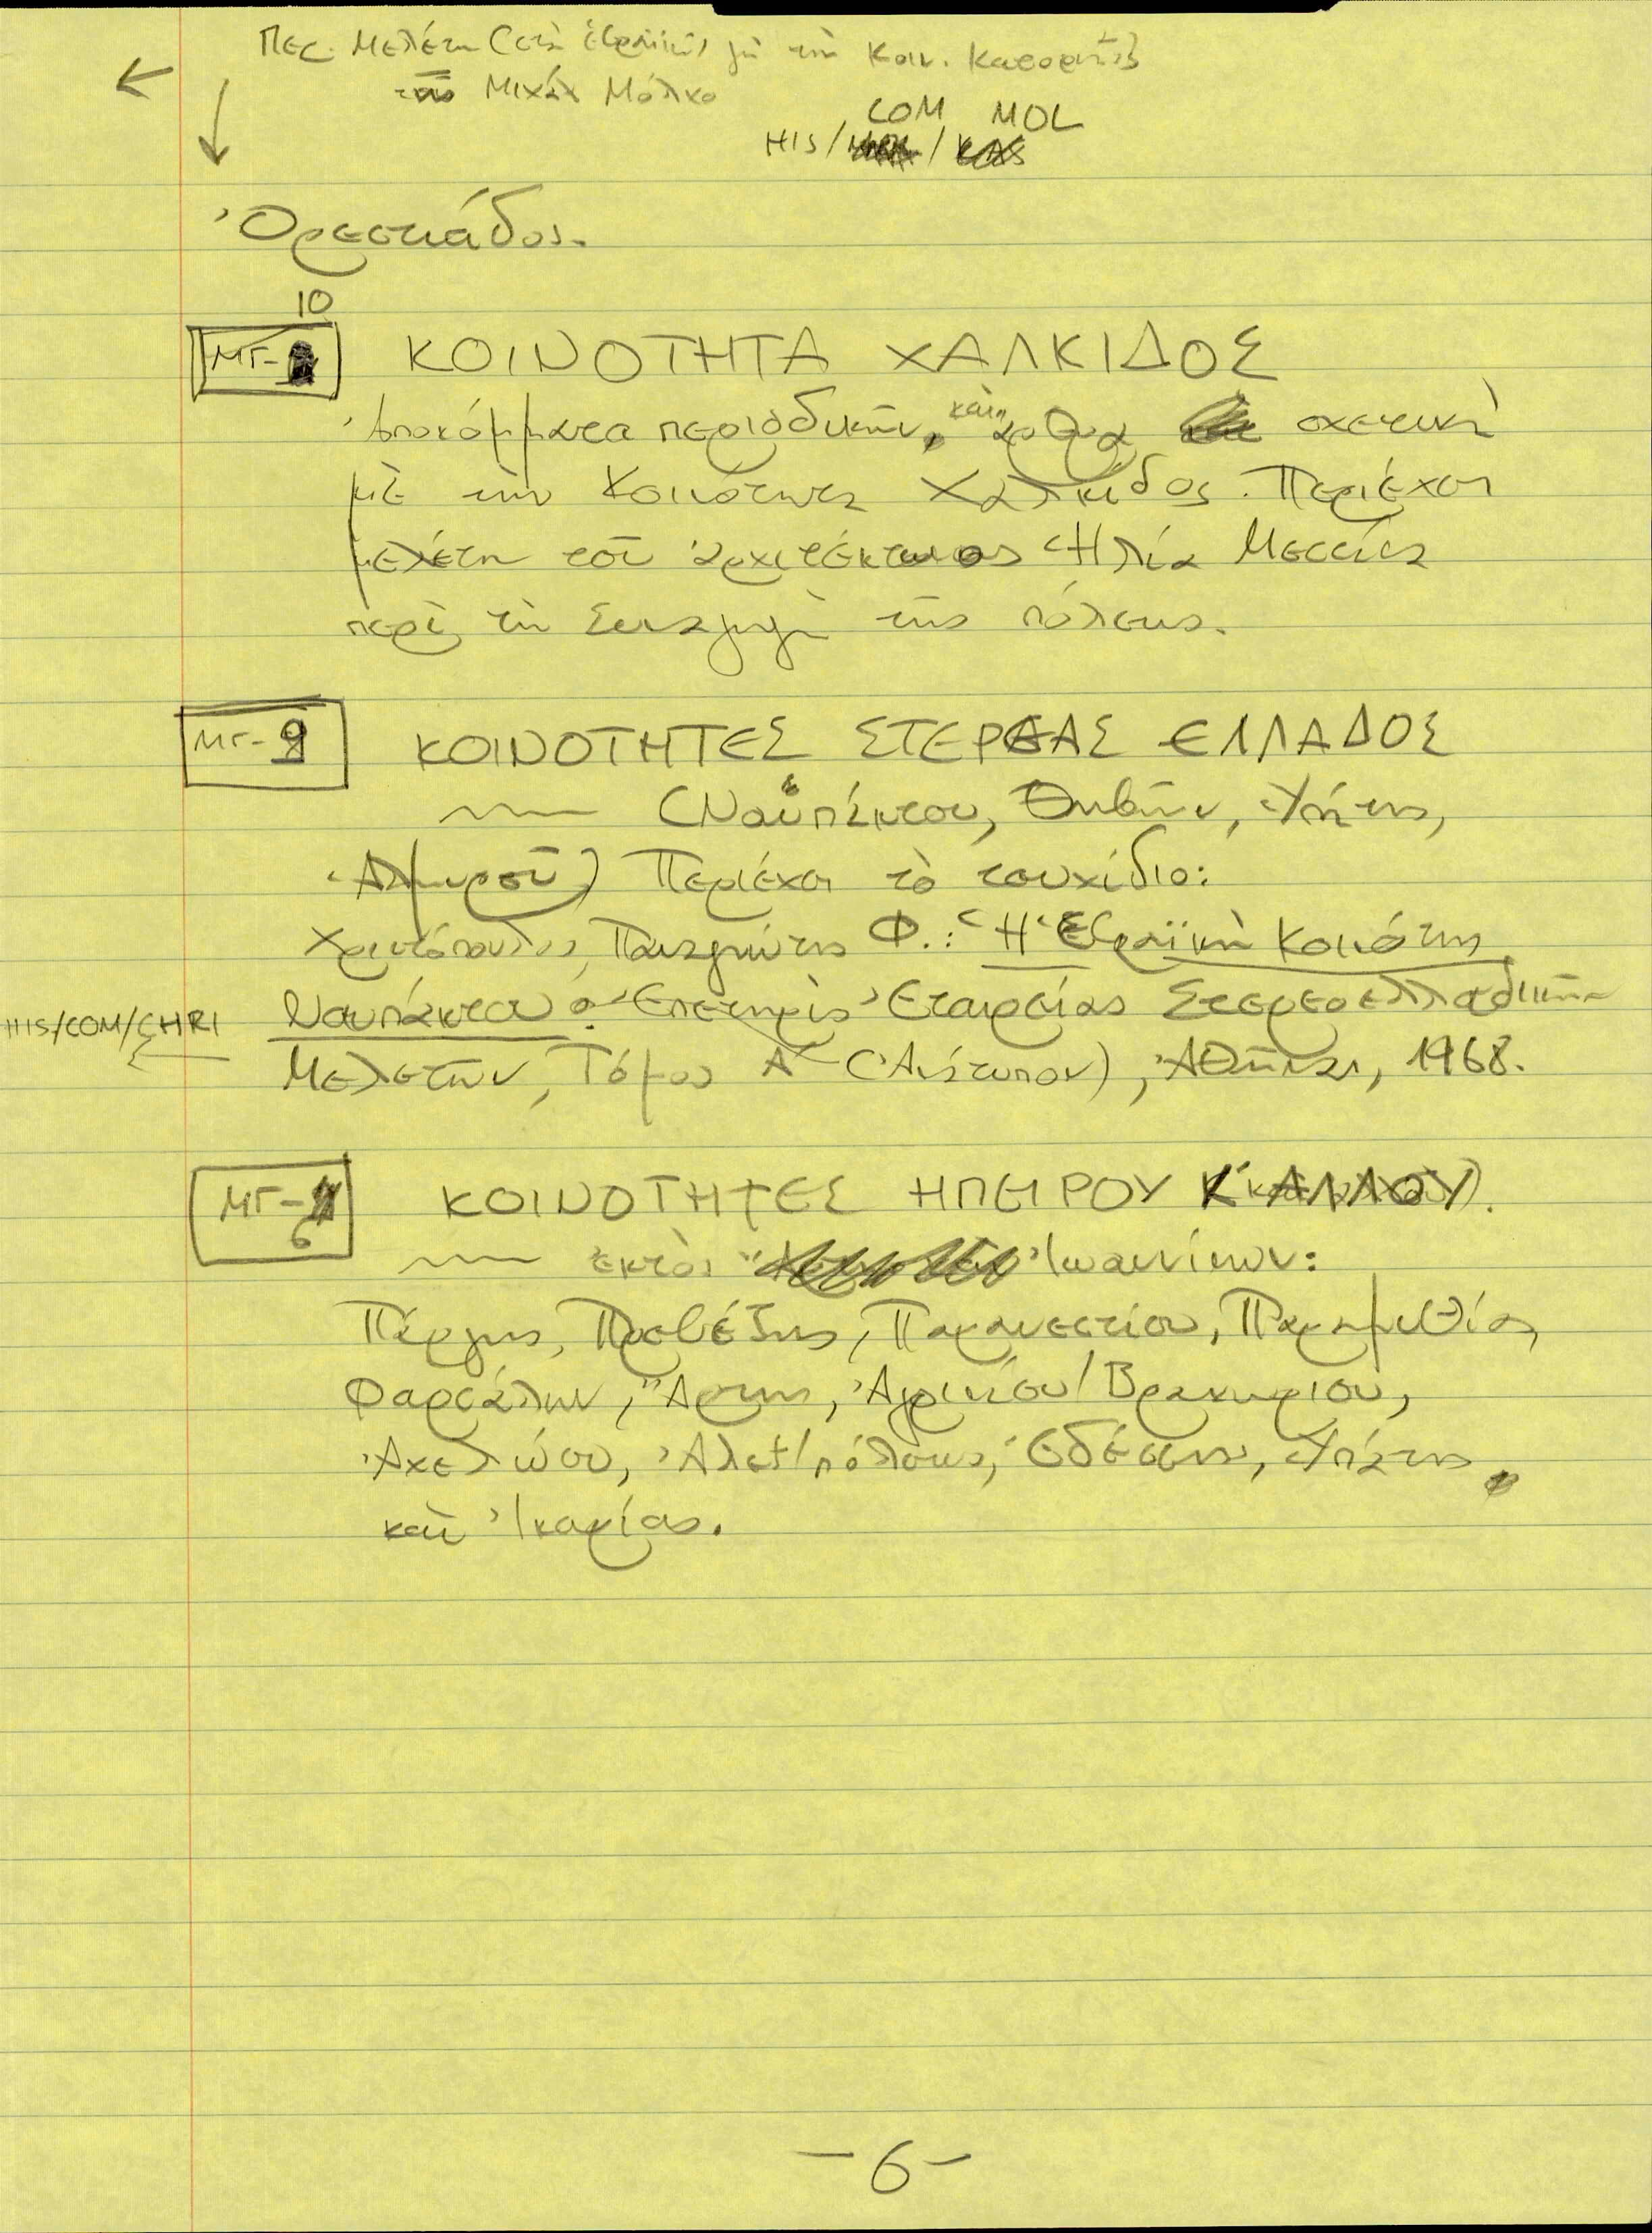 Περ. Μελέτη (στὰ ἑβραϊκά) γιὰ τὴν Κοιν. Καστοριᾶς
τοῦ Μιχαὲλ Μόλχο
COM MOL
HIS/ /
Ὀρεστιάδος.
10
ΜΓ-
ΚΟΙΝΟΤΗΤΑ ΧΑΛΚΙΔΟΣ
Ἀποκόμματα περιοδικῶν, καὶ ἄρθρα σχετικὰ
μὲ τὴν Κοινότητα Χαλκίδος. Περιέχει
μελέτη τοῦ ἀρχιτέκτονος Ἠλία Μεσσίνα
περὶ τὴ Συναγωγὴ τῆς πόλεως.
ΜΓ-9
ΚΟΙΝΟΤΗΤΕΣ ΣΤΕΡΕΑΣ ΕΛΛΑΔΟΣ
(Ναυπάκτου, Θηβῶν, Ὑπάτης,
Ἁλμυροῦ) Περιέχει τὸ τευχίδιο:
Χριστόπουλος, Παναγιώτης Φ.: Ἡ Ἑβραϊκὴ Κοινότης
Ναυπάκτου: Ἐπετηρὶς Ἑταιρείας Στερεοελλαδικῶν
HIS/COM/CHRI
Μελετῶν, Τόμος Α΄ (Ἀνάτυπον), Ἀθῆναι, 1968.
ΜΓ-
6
ΚΟΙΝΟΤΗΤΕΣ ΗΠΕΙΡΟΥ Κ΄ ΑΛΛΟΥ.
ἐκτὸς Ἰωαννίνων:
Πάργης, Πρεβέζης, Παρανεστίου, Παραμυθίας,
Φαρσάλων, Ἄρτης, Ἀγρινίου/Βραχωρίου,
Ἀχελώου, Ἀλεξ/πόλεως, Ἐδέσσης, Ὑπάτης
καὶ Ἰκαρίας.
-6-